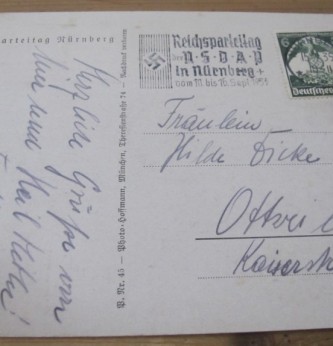 arteitag Nürnberg
Herzliche Grüße von
Heil Hitler!
P. Nr. 45 – Photo-Hoffmann, München, Theresienstraße 74 – Nachdruck verboten
Reichsparteitag
der N·S·D·A·P
in Nürnberg
vom 10. bis 16. Sept.
6
Deutsches
Fräulein
Hilde Dicke
Ottwei
Kaiserst